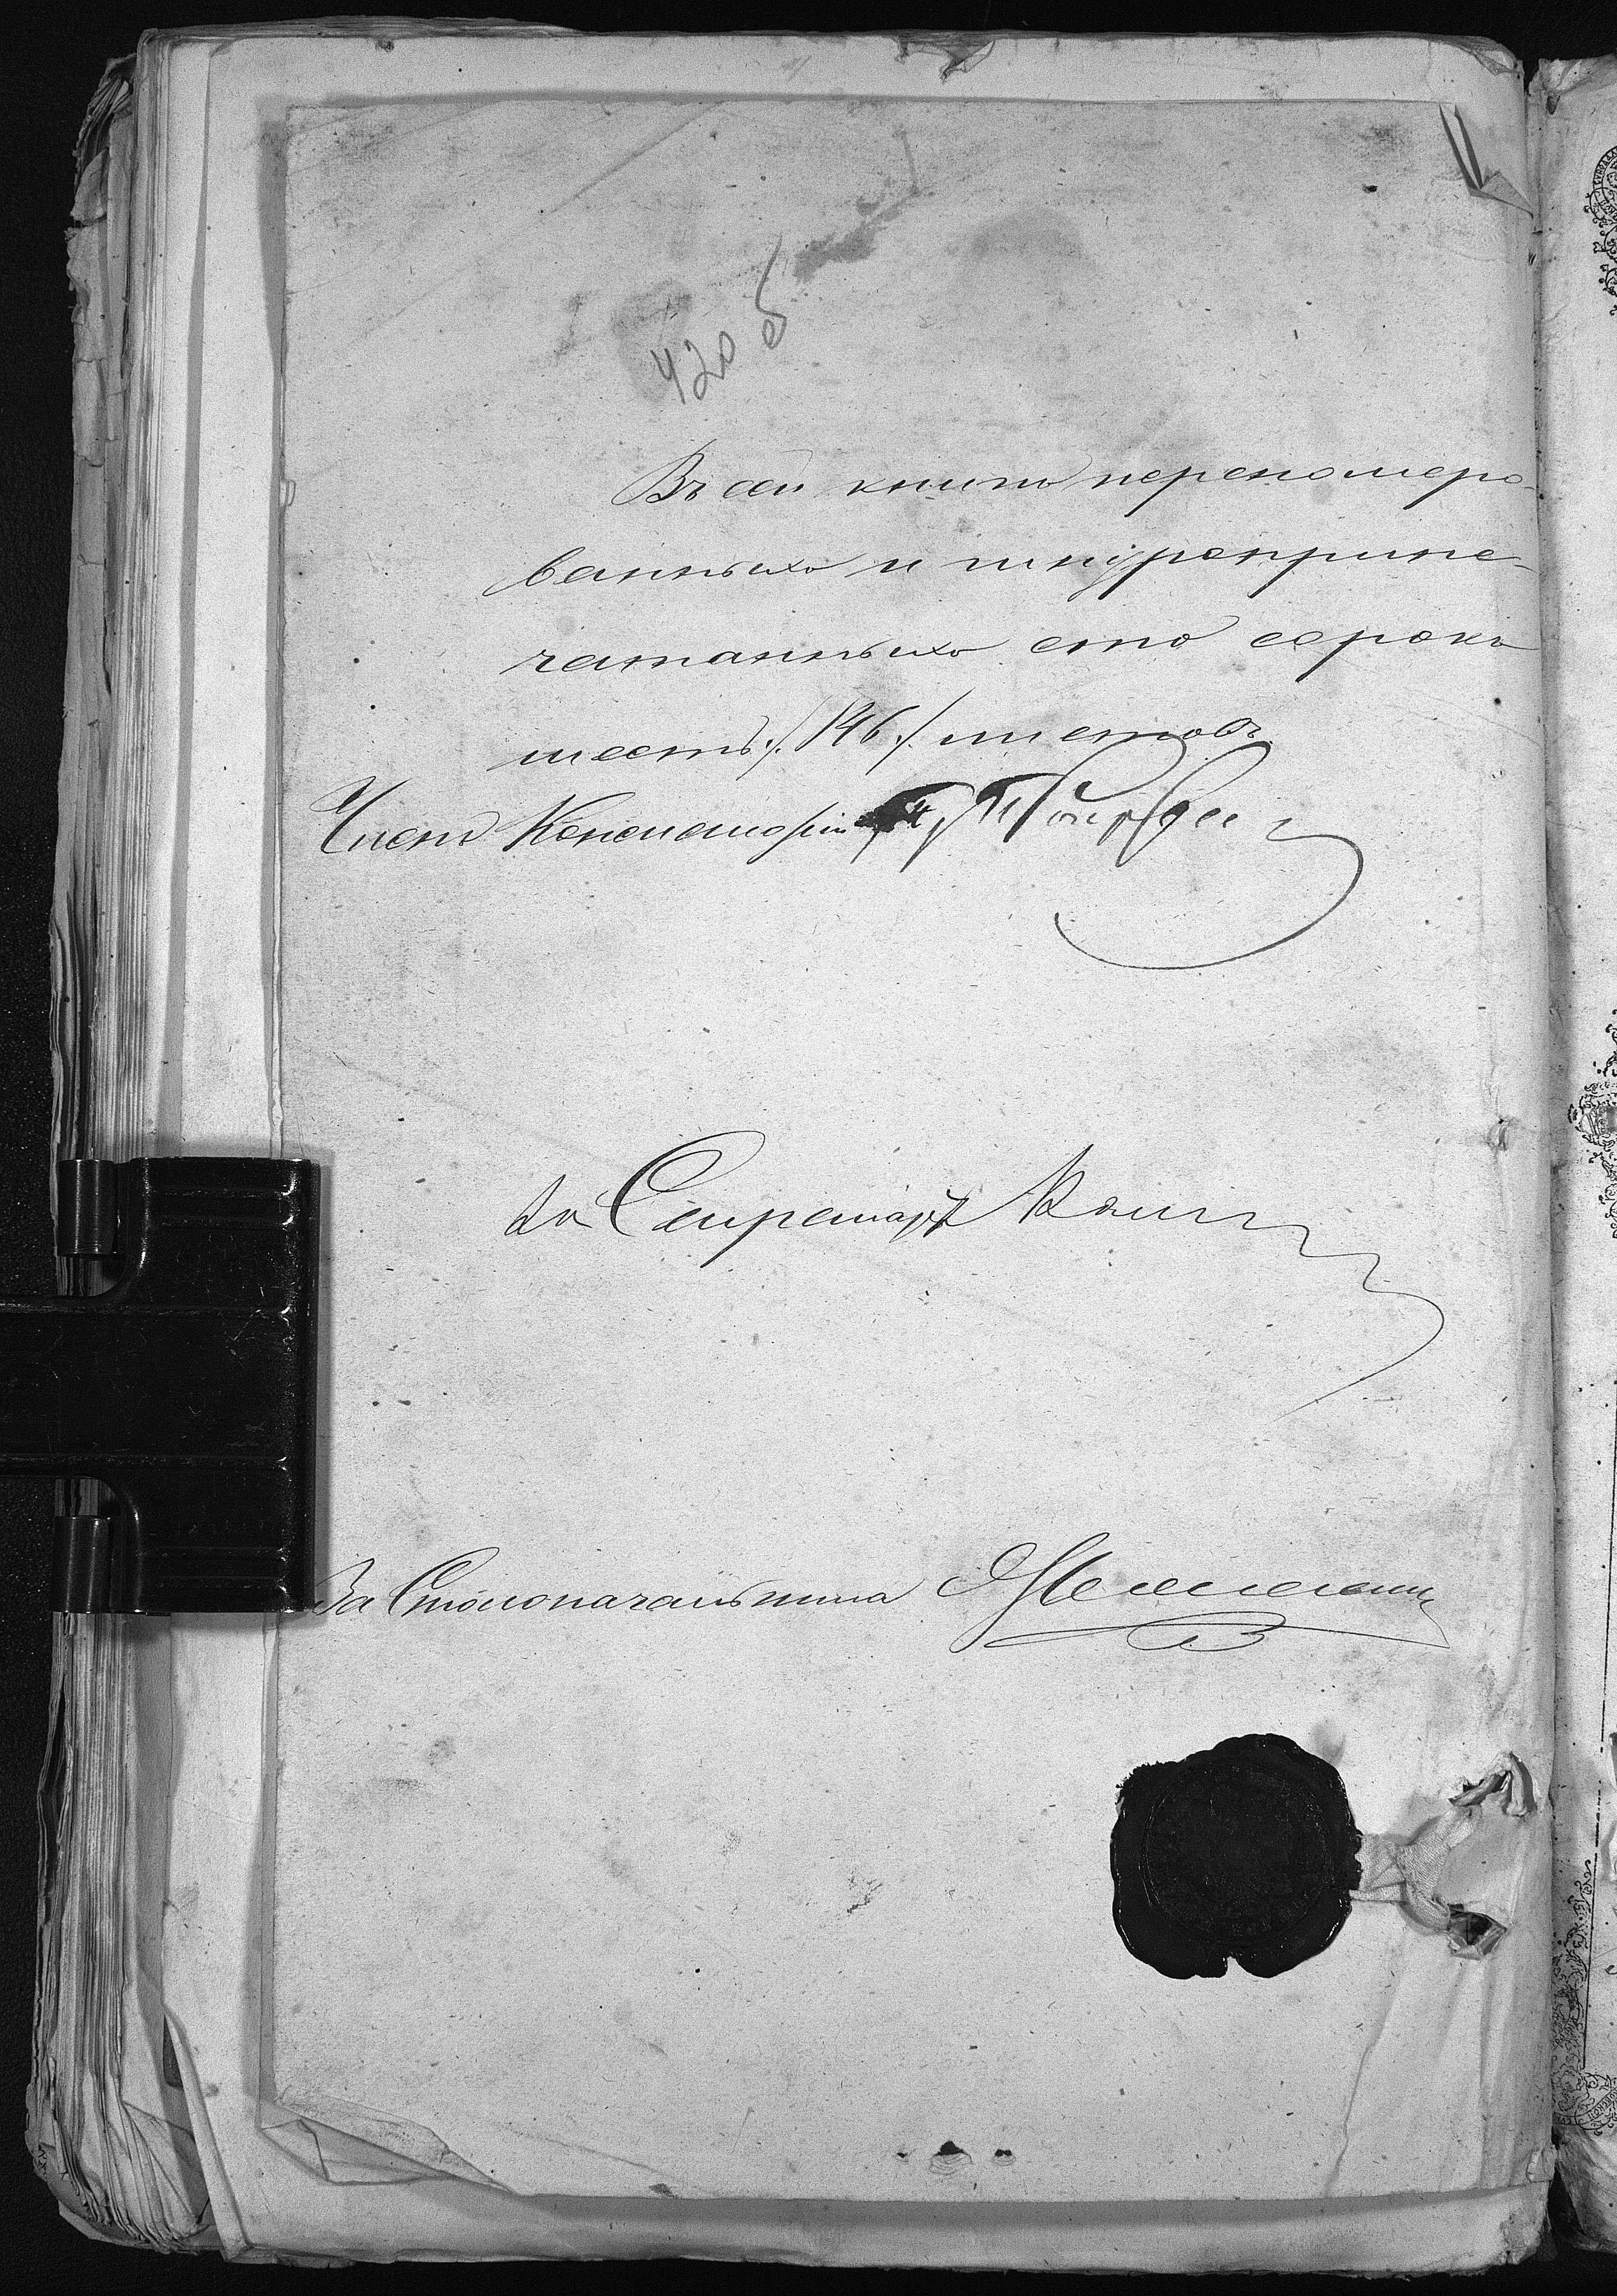 420 об
Въ сей книгѣ переномеро-
ванныхъ и шнуроприпе-
чатанныхъ сто сорокъ
шесть /146/ листовъ
Членъ Консисторіи
За Секретаря
За Столоначальника